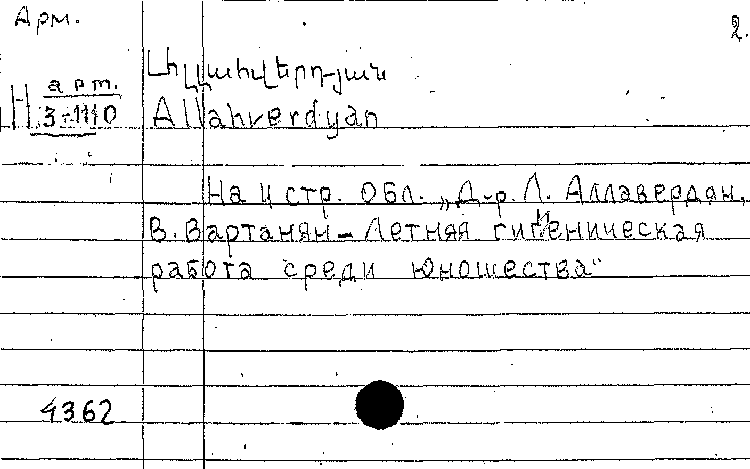 Арм.
2.
арт.
Н 3-1110
Allahverdyan
На 4 стр. обл. „Д-р. Л. Аллавердян,
В. Вартанян – Летняя гигиеническая
работа среди юношества“
4362